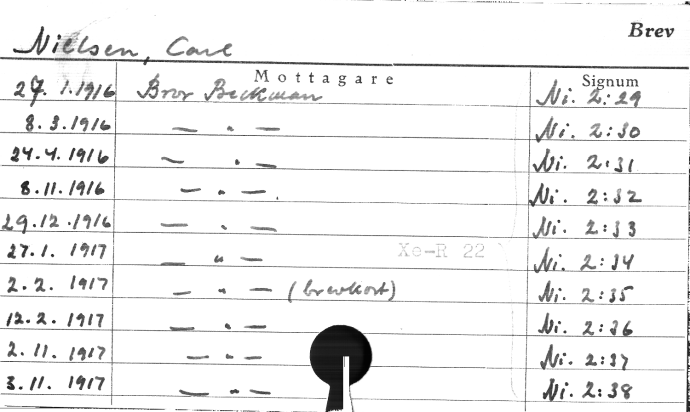 Brev
Nielsen, Carl
Mottagare Signum
27. 1.1916 Bror Beckman Ni. 2:29
8. 3.1916 — " — Ni. 2:30
24.4.1916 — " — Ni. 2:31
8.11.1916 — " — Ni. 2:32
29.12.1916 — " — Ni. 2:33
27.1.1917 — " — Ni. 2:34
Xe-R 22
2.2.1917 — " — (brevkort) Ni. 2:35
12.2.1917 — " — Ni. 2:36
2.11.1917 — " — Ni. 2:37
3.11.1917 — " — Ni. 2:38